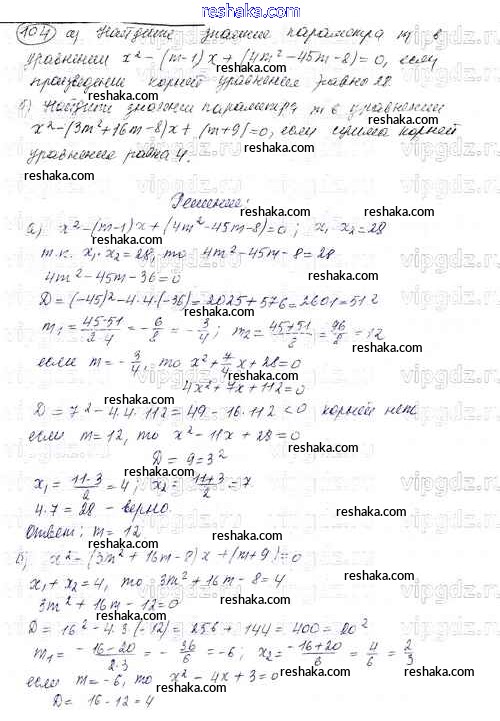 104 а) Найдите значение параметра m в
уравнении x² – (m–1)x + (4m² – 45m – 8) = 0, если
произведение корней уравнения равно 28.
б) Найдите значение параметра m в уравнении
x² – (3m² + 16m – 8)x + (m + 9) = 0, если сумма корней
уравнения равна 4.
Решение:
а) x² – (m–1)x + (4m² – 45m – 8) = 0; x₁·x₂ = 28
т.к. x₁·x₂ = 28, то 4m² – 45m – 8 = 28
4m² – 45m – 36 = 0
D = (–45)² – 4·4·(–36) = 2025 + 576 = 2601 = 51²
m₁ = (45–51)/(2·4) = –6/8 = –3/4; m₂ = (45+51)/8 = 96/8 = 12
если m = –3/4, то x² + 7/4 x + 28 = 0
4x² + 7x + 112 = 0
D = 7² – 4·4·112 = 49 – 16·112 < 0 корней нет
если m = 12, то x² – 11x + 28 = 0
D = 9 = 3²
x₁ = (11–3)/2 = 4; x₂ = (11+3)/2 = 7
4·7 = 28 – верно.
Ответ: m = 12
б) x² – (3m² + 16m – 8)x + (m + 9) = 0
x₁ + x₂ = 4, то 3m² + 16m – 8 = 4
3m² + 16m – 12 = 0
D = 16² – 4·3·(–12) = 256 + 144 = 400 = 20²
m₁ = (–16–20)/(2·3) = –36/6 = –6; x₂ = (–16+20)/6 = 4/6 = 2/3
если m = –6, то x² – 4x + 3 = 0
D = 16 – 12 = 4
reshaka.com
vipgdz.ru